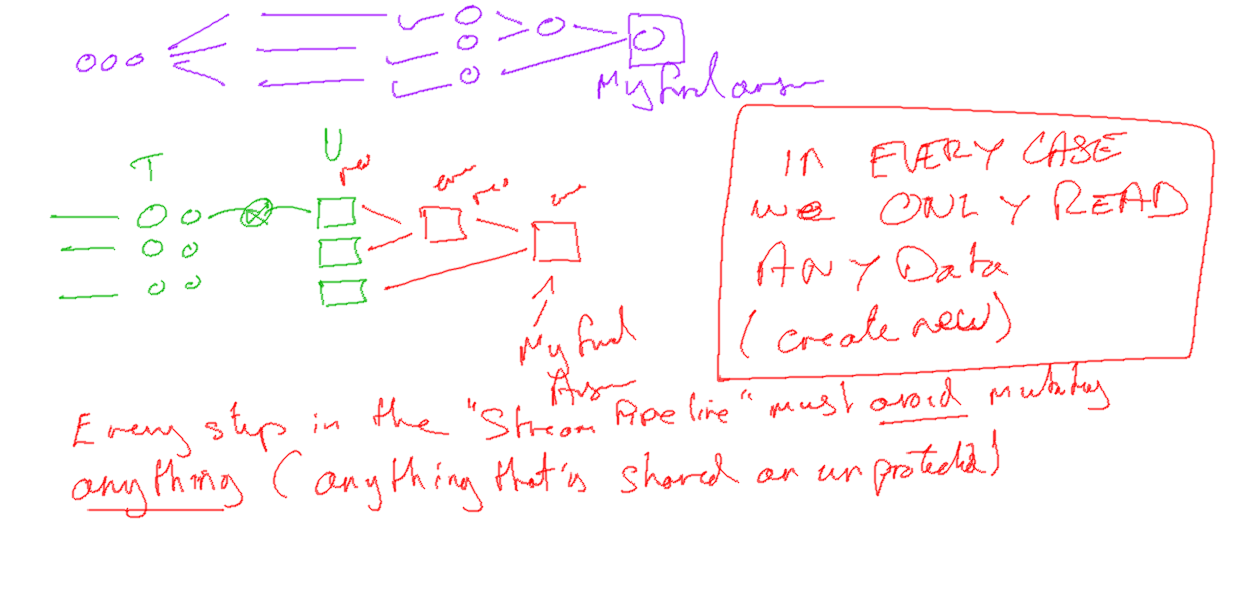 My final answer
T
U
IN EVERY CASE
we ONLY READ
ANY Data
(create new)
My final
Answer
Every step in the "Stream Pipeline" must avoid mutating
anything (anything that's shared or unprotected)